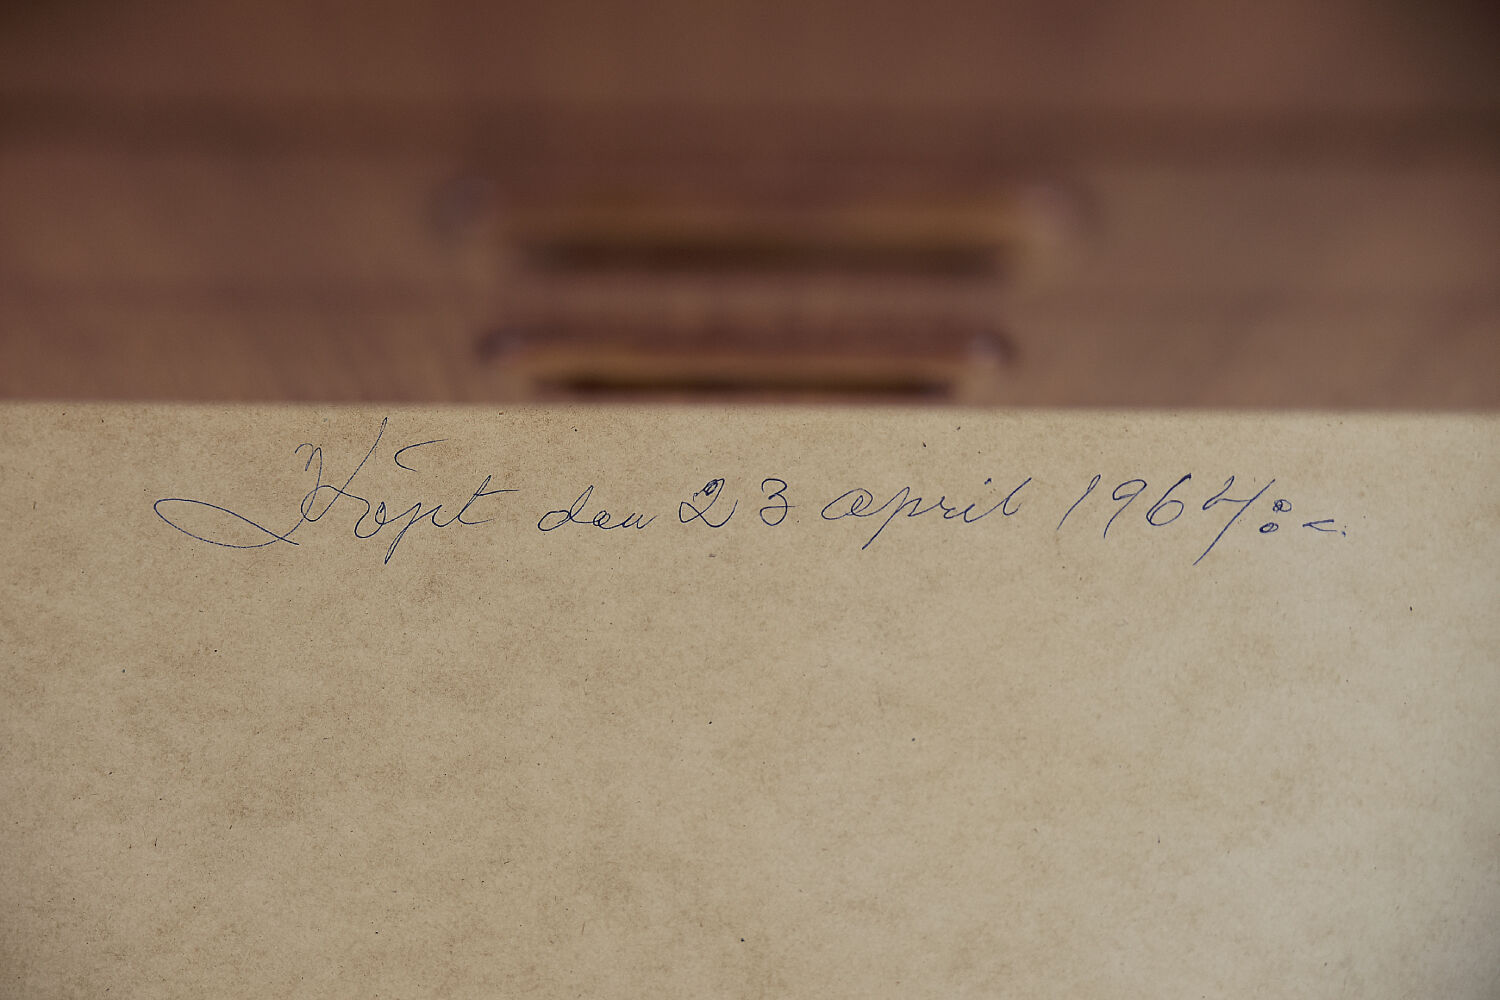 Köpt den 23 april 1964:-